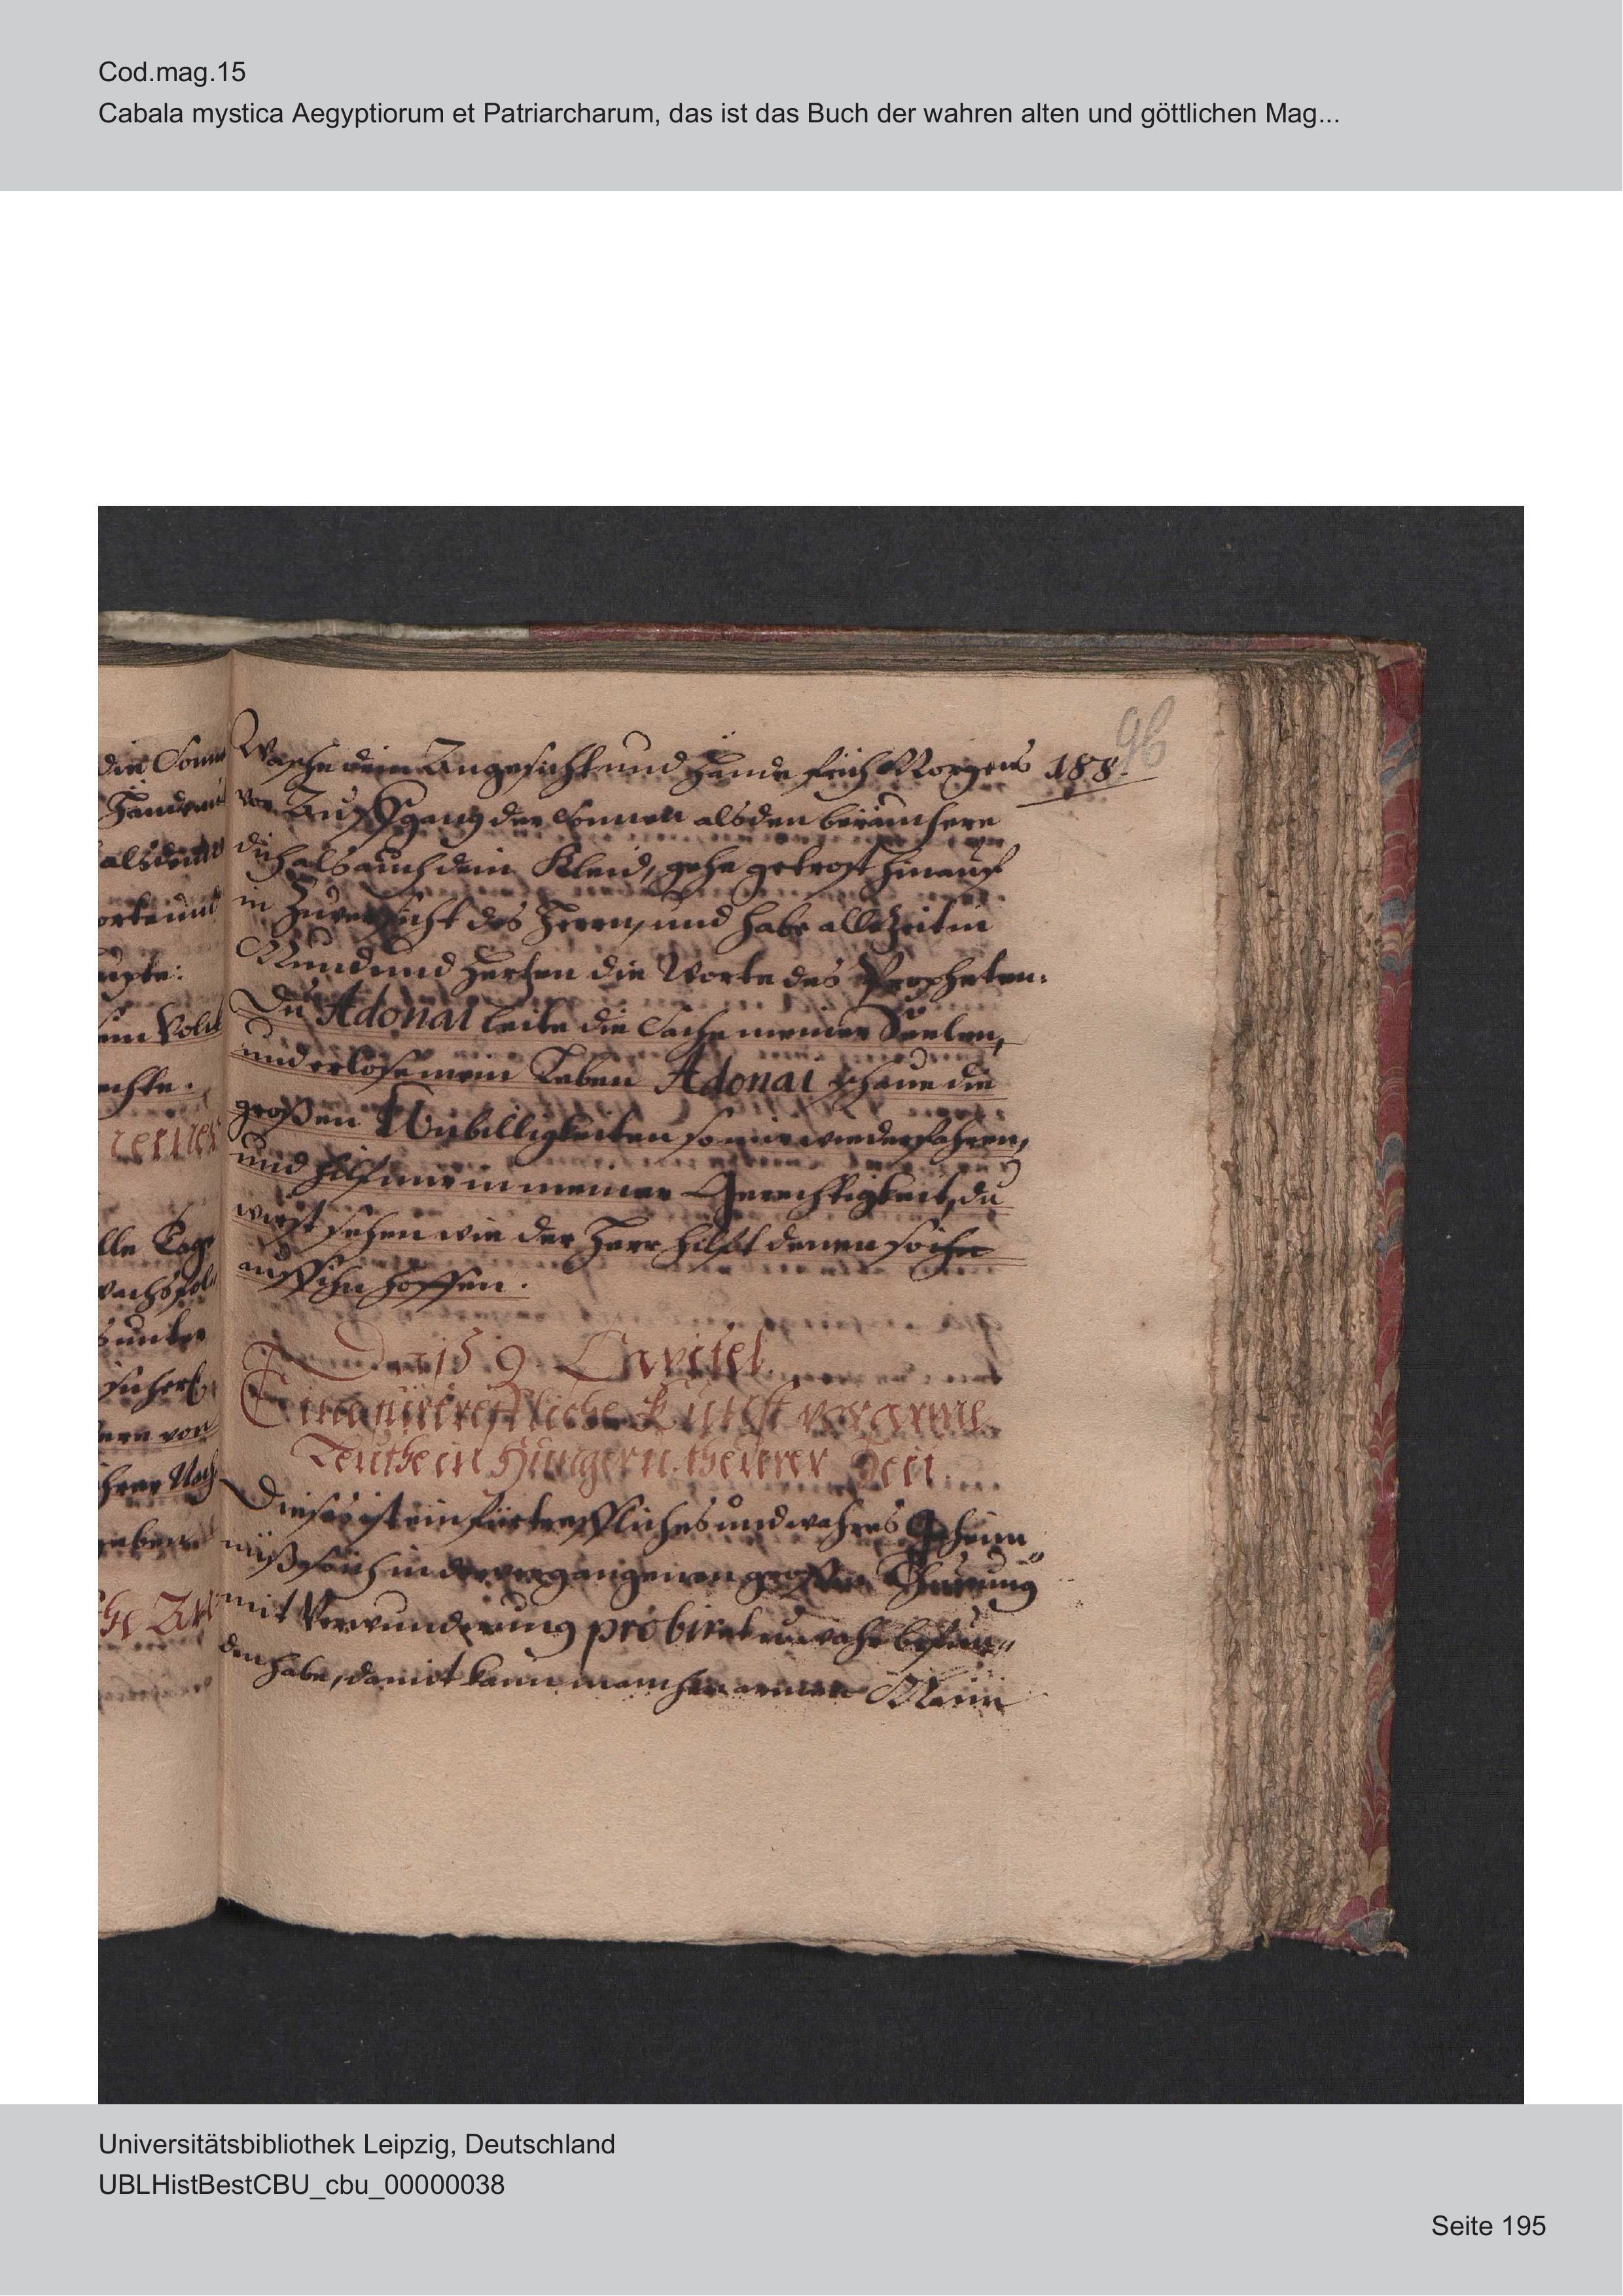 Cod.mag.15
Cabala mystica Aegyptiorum et Patriarcharum, das ist das Buch der wahren alten und göttlichen Mag...
96
188.
Wasche dein Angesicht und Hände früh Morgens
vor Auffgang der Sonnen alsden beräuchere
dich als auch dein Kleid, gehe getrost hinauf
in Zuversicht des Herrn, und habe allezeit in
Mund und Herzen die Worte des Propheten:
Du Adonai leite die Sache meiner Seelen,
und erlöse mein Leben Adonai schaue die
großen Unbilligkeiten so mir wiederfahren,
und hilf mir in meiner Gerechtigkeit, du
wirst sehen wie der Herr hilft denen so
auff ihn hoffen.
Das 9. Capitel
Eine fürtreffliche Kunst vor arme
Leuthe in Hungern theurer Zeit
Dieses ist ein fürtreffliches und wahres Geheim
nüß so ich in der vergangenen großen Theurung
mit Verwunderung probiret u. wahr befun
den habe, damit kann mancher armer Mann
die Sonne
Händ
alsden
orte und
upte:
ein Volck
echte.
lle Tage
wachs
unter
ern von
ihrer Nach
geben
Universitätsbibliothek Leipzig, Deutschland
UBLHistBestCBU_cbu_00000038
Seite 195